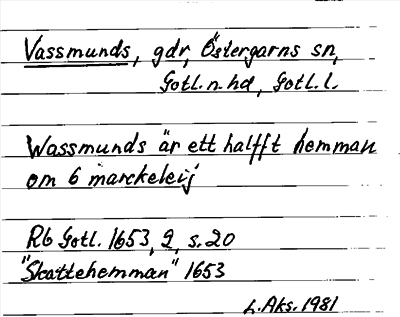 Vassmunds, gdr, Östergarns sn,
Gotl. n. hd, Gotl. l.
Wassmunds är ett halfft hemman
om 6 marckeleij
Rb Gotl. 1653, 2, s. 20
"Skattehemman" 1653
L. Aks. 1981